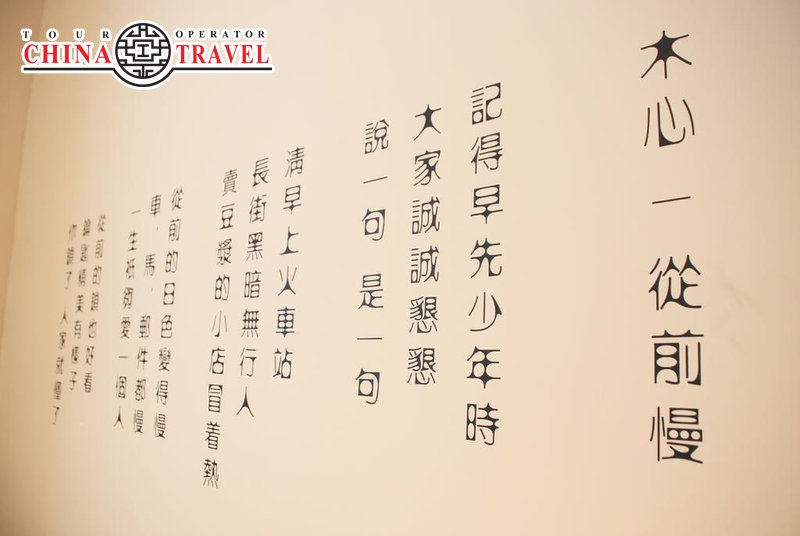 TOUR OPERATOR
CHINA TRAVEL
木心 — 從前慢
記得早先少年時
大家誠誠懇懇
說一句 是一句
清早上火車站
長街黑暗無行人
賣豆漿的小店冒着熱
從前的日色變得慢
車，馬，郵件都慢
一生祇夠愛一個人
從前的鎖也好看
鑰匙精美有樣子
你鎖了 人家就懂了